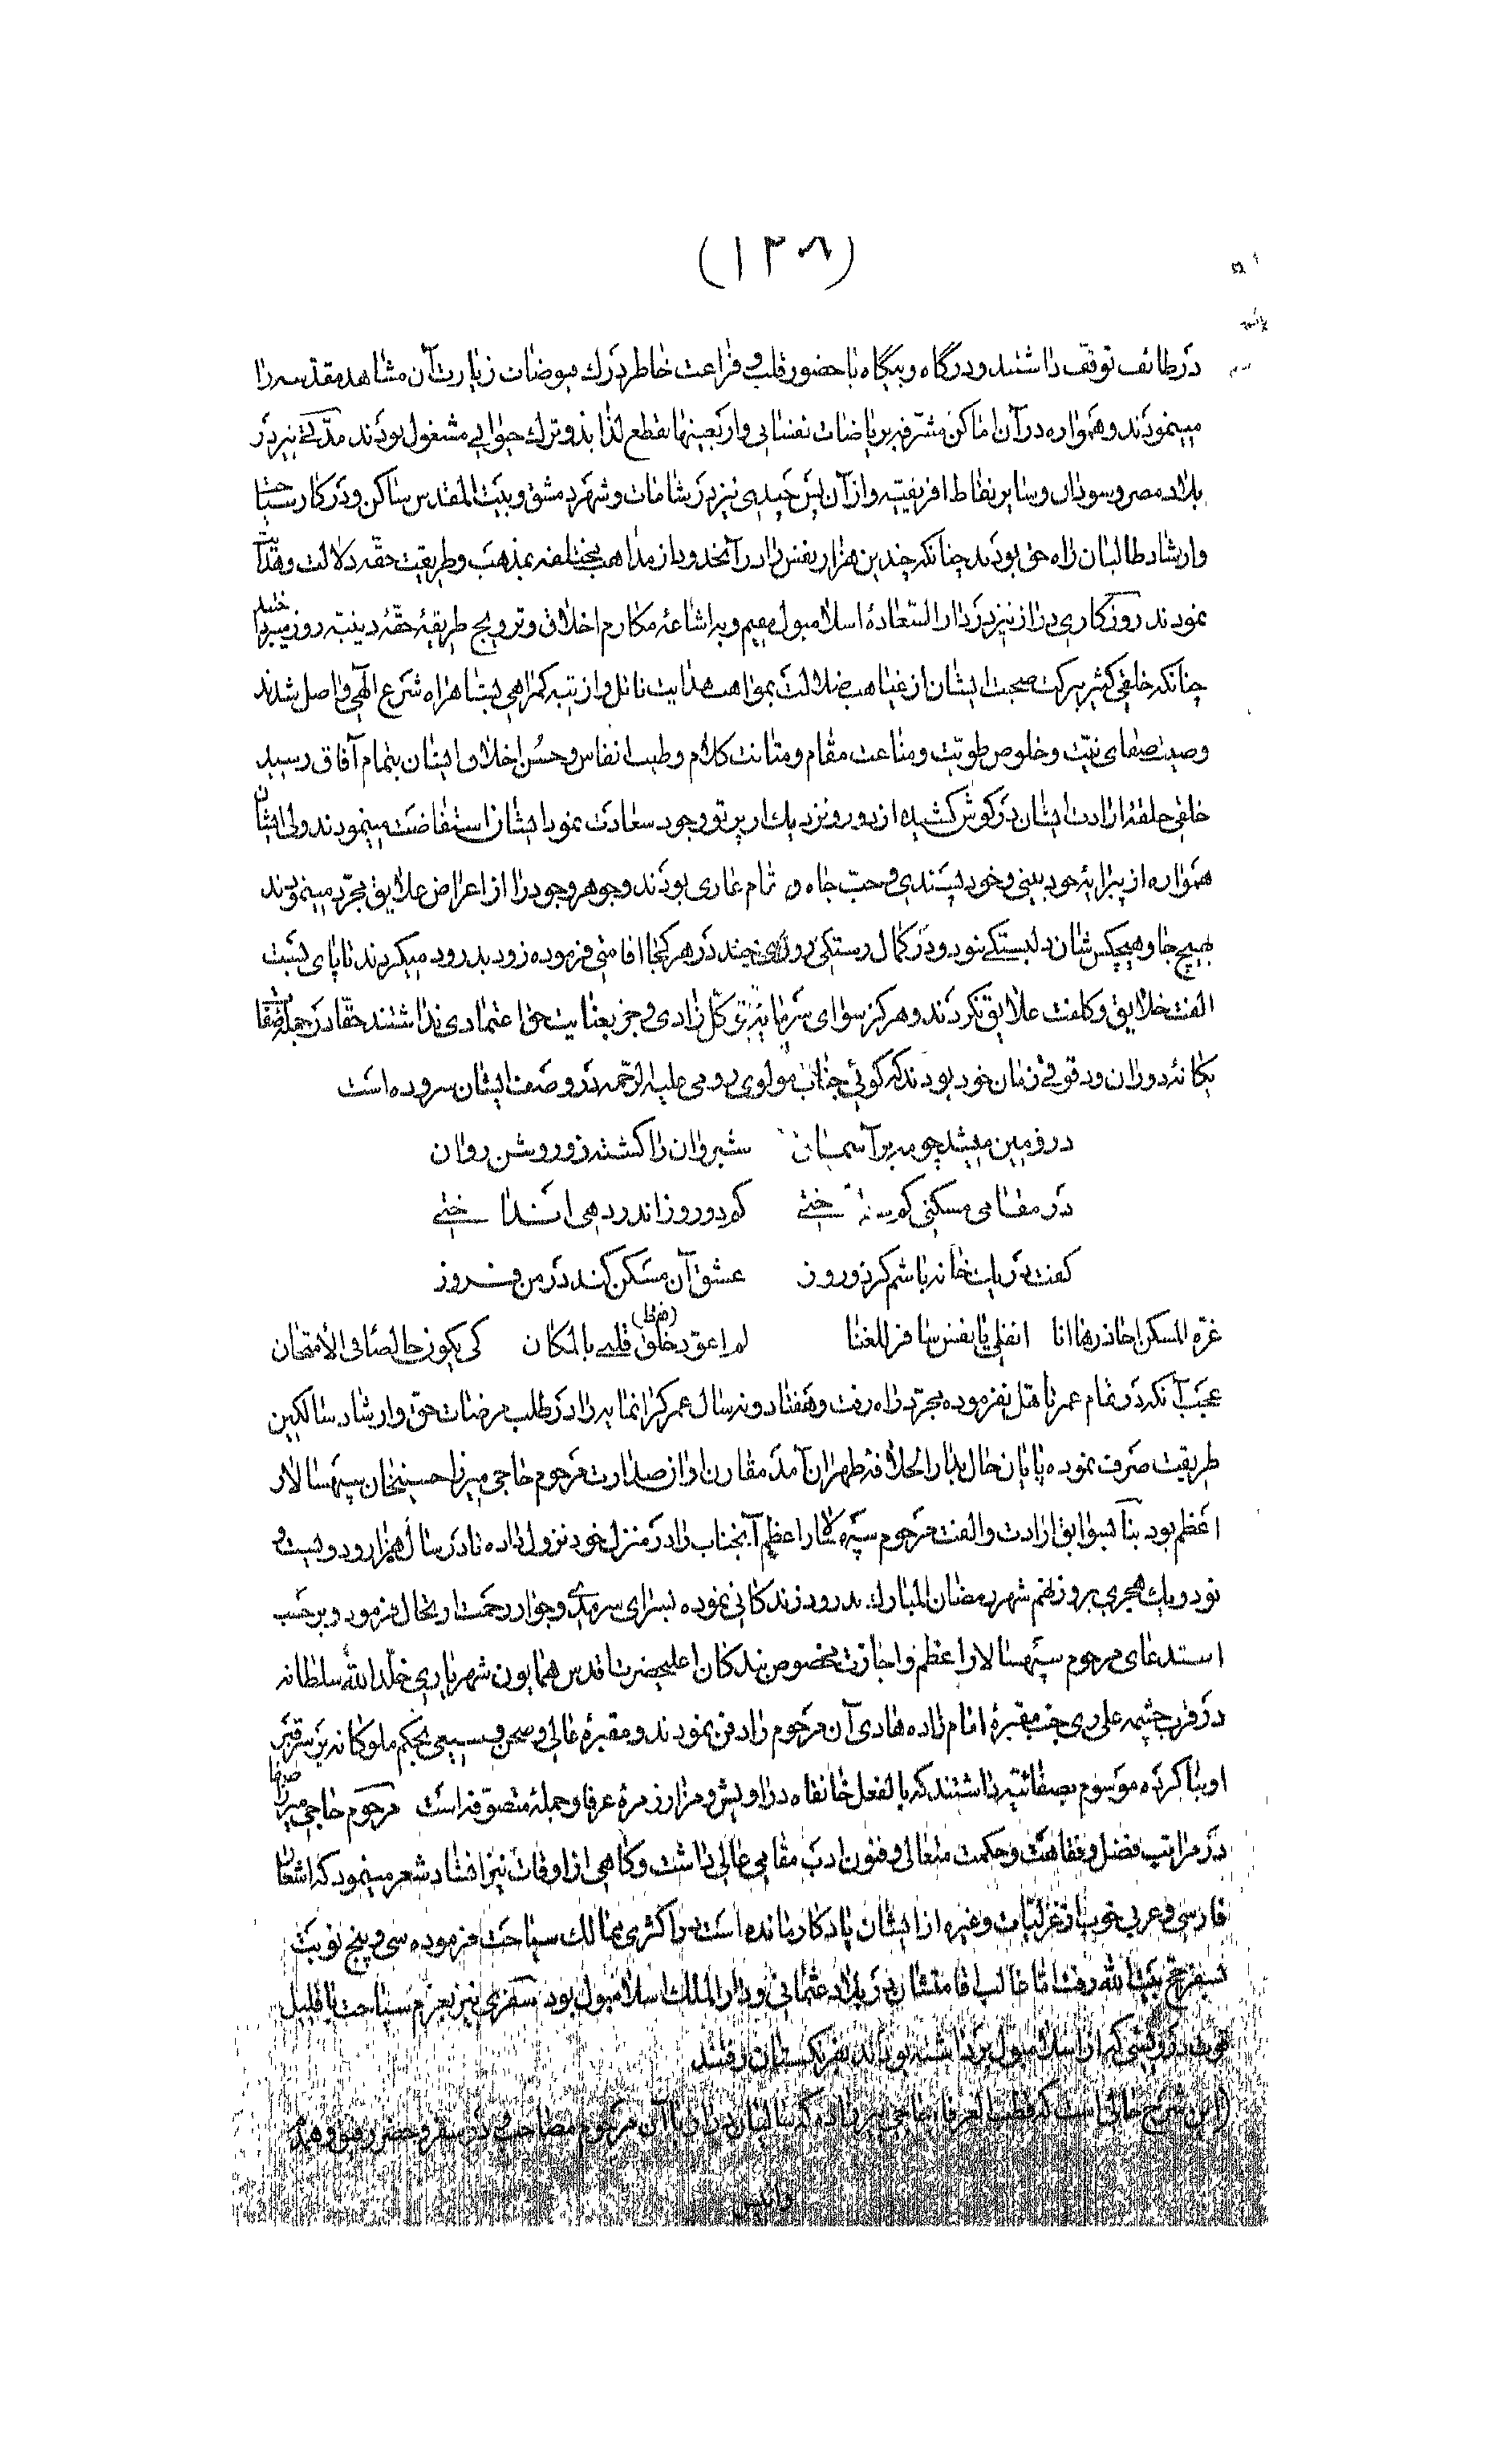 (١٣٨)
در طائف توقف داشتند و در گاه و بیگاه با حضور قلب و فراغت خاطر درك فیوضات زیارت آن مشاهد مقدسه را
مینمودند و همواره در آن اماکن مشرفه بریاضات نفسانی و اربعینها بقطع لذایذ و ترك حیوانی مشغول بودند مدتی نیز در
بلاد مصر و سودان و سایر نقاط افریقیه و از آن پس چندی نیز در شامات و شهر دمشق و بیت المقدس ساکن و در کار سیاحت
و ارشاد طالبان راه حق بودند چنانکه چندین هزار نفس را در آنحدود از مذاهب مختلفه بمذهب و طریقت حقه دلالت و هدایت
نمودند روزگاری دراز نیز در دار السعاده اسلامبول مقیم و به اشاعه مکارم اخلاق و ترویج طریقهٔ حقهٔ دینیه روز میبردند
چنانکه خلقی کثیر ببرکت صحبت ایشان از غیاهب ضلالت بمواهب هدایت نائل و از تیه گمراهی بشاهراه شرع الهی واصل شدند
وصیت صفای نیت و خلوص طویت و مناعت مقام و متانت کلام و طیب انفاس و حسن اخلاق ایشان بتمام آفاق رسید
خلقی حلقهٔ ارادت ایشان در گوش کشیده از دور و نزدیك از پرتو وجود سعادت نمود ایشان استفاضت مینمودند ولی ایشان
همواره از پیرایهٔ خودبینی و خودپسندی و حب جاه و تمام عاری بودند و جوهر وجود را از اعراض علایق مجرد مینمودند
بهیچ جا و هیچکس شان دلبستگی نبود و در کمال رستگی روزی چند در هر کجا اقامتی فرموده زود بدرود میکردند تا پای بست
الفت خلایق و کلفت علایق نگردند و هرگز سوای سرمایهٔ توکل زادی و جز بعنایت حق اعتمادی نداشتند حقا در جمله صفات
یگانهٔ دوران و دقوقی زمان خود بودند که گوئی جناب مولوی رومی علیه الرحمه در وصف ایشان سروده است
در زمین میشد چو مه بر آسمان شبروان را گشته زو روشن روان
در مقامی مسکنی کم ساختی کم دو روز اندر دهی انداختی
گفت در یك خانه باشم گر دو روز عشق آن مسکن کند در من فروز
غرة المسکن احاذرها انا انقلی یا نفس سافر للغنا لم اعود خلق قلبی بالمکان کی یکون خالصا فی الامتحان
عجب آنکه در تمام عمر تاهل نفرموده مجرد راه رفت و هفتاد و نه سال عمر گرانمایه را در طلب مرضات حق و ارشاد سالکین
طریقت صرف نموده پایان حال بدار الخلافه طهران آمد مقارن اواز صدارت مرحوم حاجی میرزا حسینخان سپهسالار
اعظم بود بنا بسوابق ارادت و الفت مرحوم سپهسالار اعظم آنجناب را در منزل خود نزول داده تا در سال هزار و دویست و
نود و یك هجری بروز نهم شهر رمضان المبارك بدرود زندگانی نموده بسرای سرمدی و جوار رحمت ارتحال فرمود و بر حسب
استدعای مرحوم سپهسالار اعظم و اجازت مخصوص بندگان اعلیحضرت اقدس همایون شهریاری خلد الله سلطانه
در قرب چشمه علی ری جنب مقبرهٔ امام زاده هادی آن مرحوم را دفن نمودند و مقبرهٔ عالی و صحن وسیعی بحکم ملوکانه بر سر قبر
او بنا کرده موسوم بصفائیه داشتند که بالفعل خانقاه دراویش و مزار زمرهٔ عرفا و جملهٔ متصوفه است مرحوم حاجی میرزا صفا
در مراتب فضل و فقاهت و حکمت متعالی و فنون ادب مقامی عالی داشت و گاهی از اوقات نیز انشاد شعر مینمود که اشعار
فارسی و عربی خوب از غزلیات و غیره از ایشان یادگار مانده است در اکثری ممالك سیاحت فرموده سی و پنج نوبت
بسفر حج بیت الله رفت اما غالب اقامتشان در بلاد عثمانی و دار الملك اسلامبول بود سفری نیز بعزم سیاحت با قلیل
درویشی که از اسلامبول برداشته بودند بفرنگستان رفتند
(این شرح حالی است که قطب العرفاء حاجی پیرزاده که سالیان دراز با آن مرحوم مصاحب و در سفر و حضر رفیق و همدم